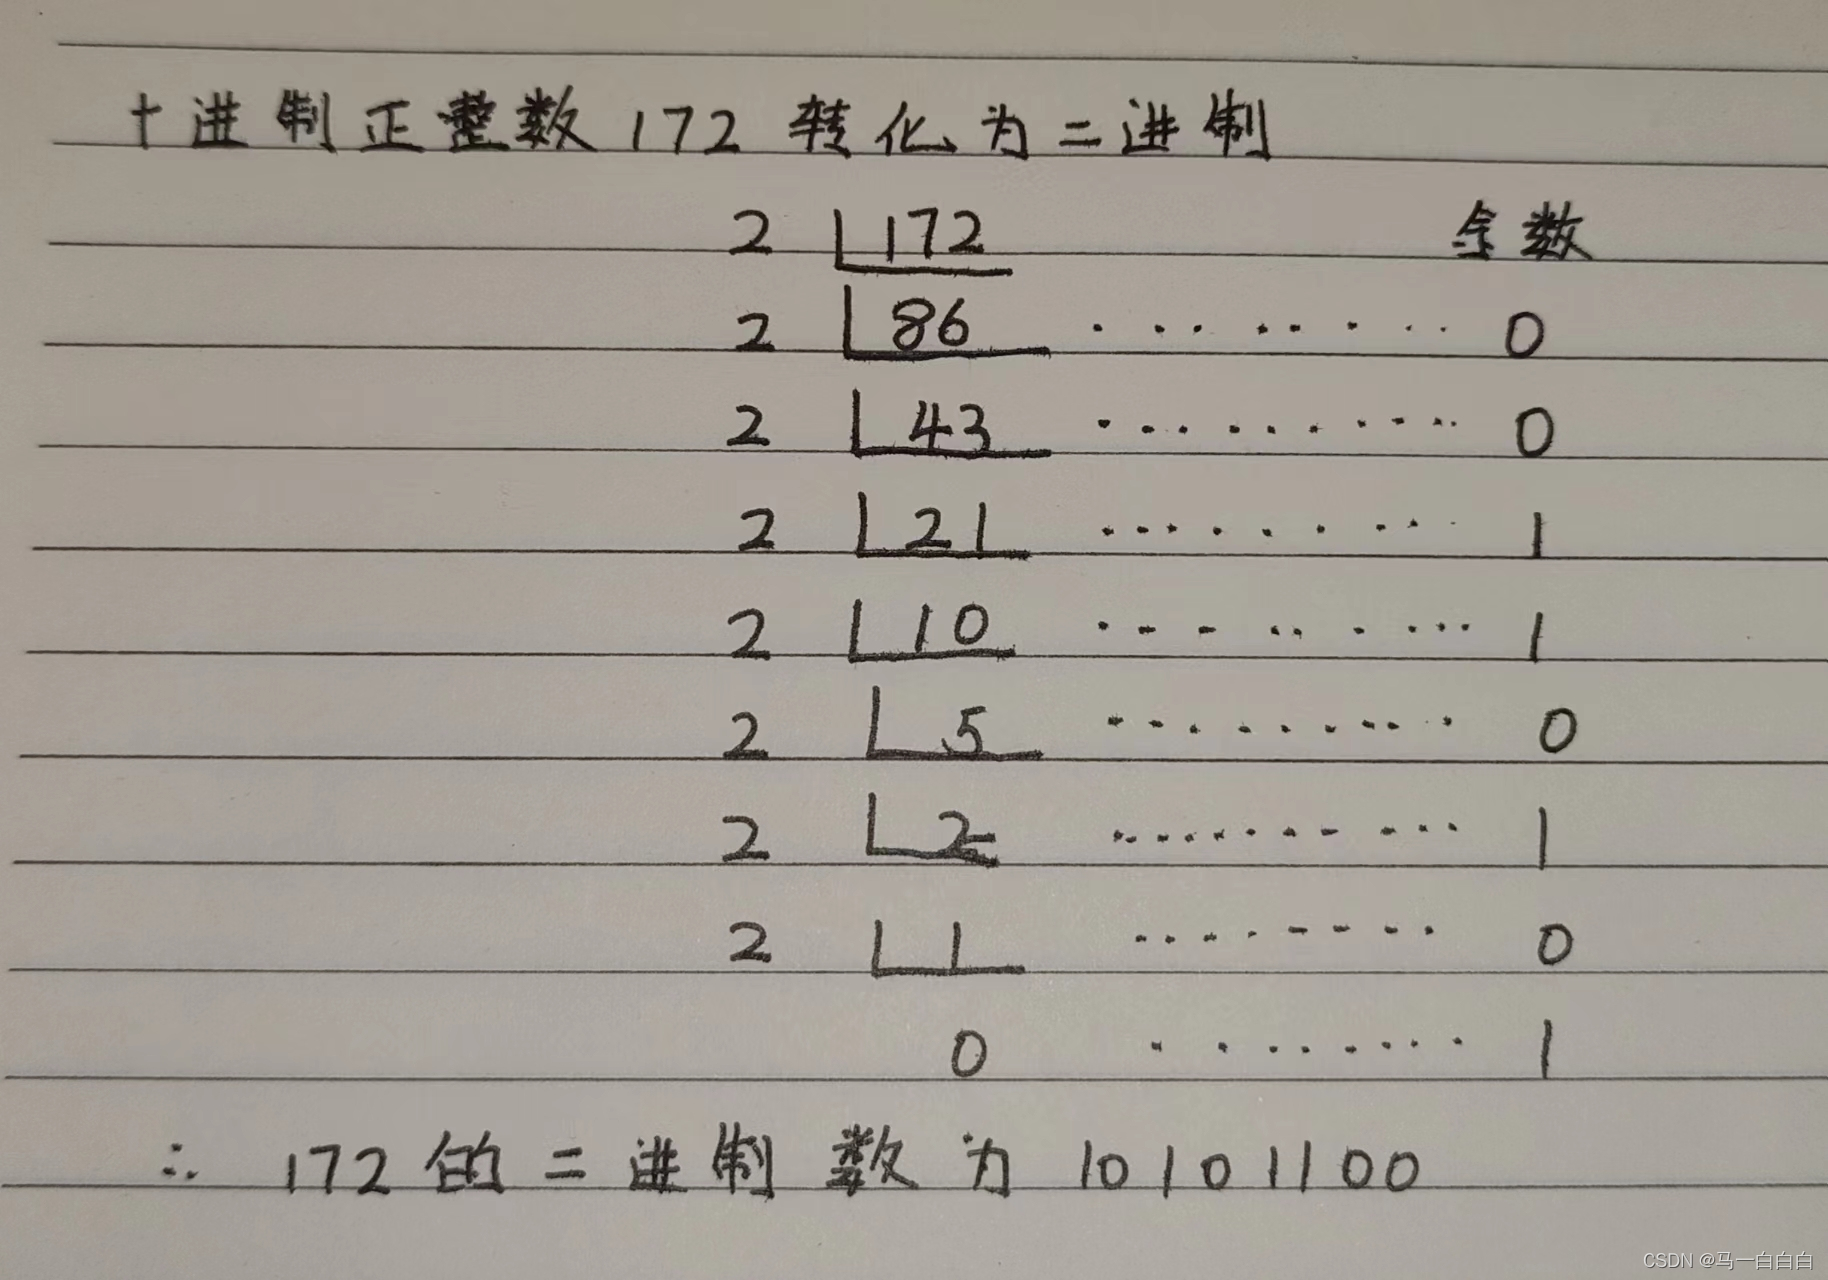 十进制正整数172转化为二进制
2 172 余数
2 86 ········ 0
2 43 ·········· 0
2 21 ········· 1
2 10 ········· 1
2 5 ········· 0
2 2 ·········· 1
2 1 ········ 0
0 ········ 1
∴ 172的二进制数为10101100
CSDN @马一白白白